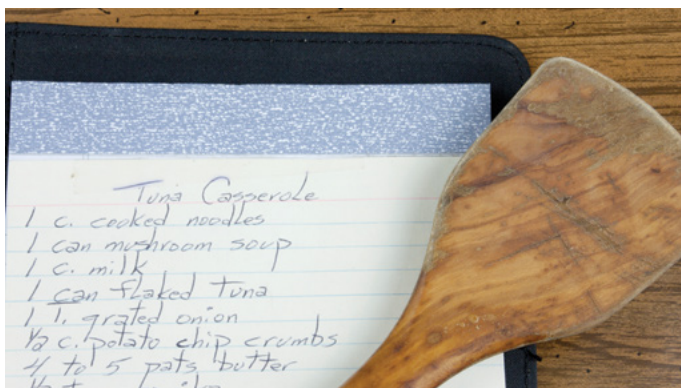 Tuna Casserole
1 c. cooked noodles
1 can mushroom soup
1 c. milk
1 can flaked tuna
1 T. grated onion
1/2 c. potato chip crumbs
4 to 5 pats butter
1/2 t.